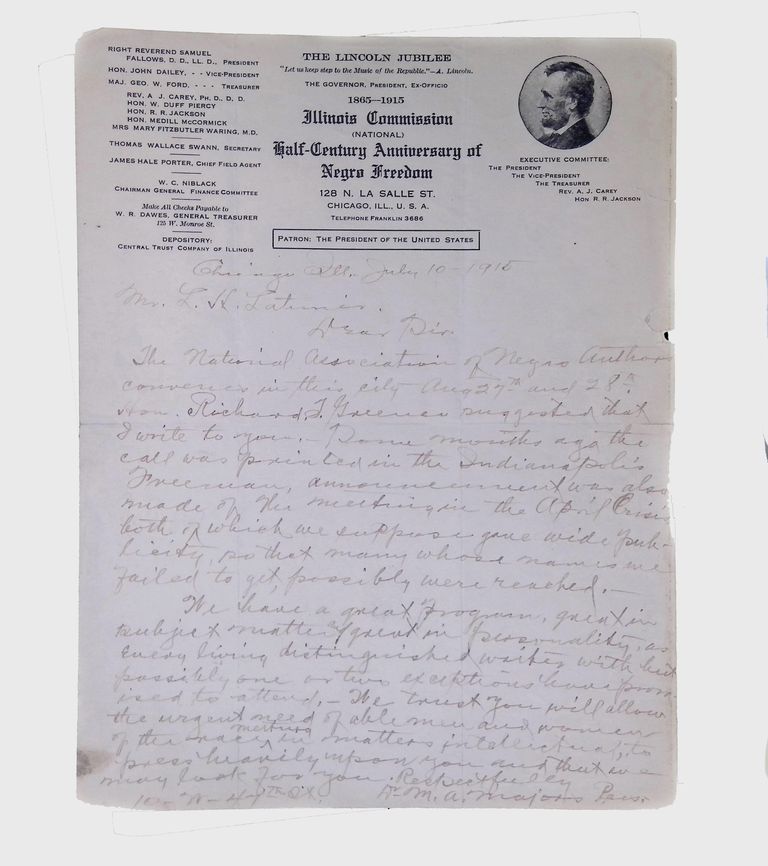 RIGHT REVEREND SAMUEL
FALLOWS, D. D., LL. D., PRESIDENT
HON. JOHN DAILEY, - - VICE-PRESIDENT
MAJ. GEO. W. FORD, - - - TREASURER
REV. A. J. CAREY, PH. D., D. D.
HON. W. DUFF PIERCY
HON. R. R. JACKSON
HON. MEDILL MCCORMICK
MRS MARY FITZBUTLER WARING, M.D.
THOMAS WALLACE SWANN, SECRETARY
JAMES HALE PORTER, CHIEF FIELD AGENT
W. C. NIBLACK
CHAIRMAN GENERAL FINANCE COMMITTEE
Make All Checks Payable to
W. R. DAWES, GENERAL TREASURER
125 W. Monroe St.
DEPOSITORY:
CENTRAL TRUST COMPANY OF ILLINOIS
THE LINCOLN JUBILEE
"Let us keep step to the Music of the Republic."—A. Lincoln.
THE GOVERNOR, PRESIDENT, EX-OFFICIO
1865—1915
Illinois Commission
(NATIONAL)
Half-Century Anniversary of
Negro Freedom
128 N. LA SALLE ST.
CHICAGO, ILL., U. S. A.
TELEPHONE FRANKLIN 3686
PATRON: THE PRESIDENT OF THE UNITED STATES
EXECUTIVE COMMITTEE:
THE PRESIDENT
THE VICE-PRESIDENT
THE TREASURER
REV. A. J. CAREY
HON R. R. JACKSON
Chicago Ill. July 10-1915
Mr. L. H. Latimer.
Dear Sir.
The National Association of Negro Authors
convenes in this city Aug 27th and 28th.
Hon. Richard T. Greener suggested that
I write to you. - Some months ago the
call was printed in the Indianapolis
Freeman, announcement was also
made of the meeting in the April Crisis
both of which we suppose gave wide pub-
licity, so that many whose names we
failed to get, possibly were reached. —
We have a great Program, great in
subject matter, great in personality, as
every living distinguished writer with but
possibly one or two exceptions have prom-
ised to attend. - We trust you will allow
the urgent need of able men and women
of the race meeting in matters intellectual, to
press heavily upon you and that we
may look for you. Respectfully
Dr. M. A. Majors Pres.